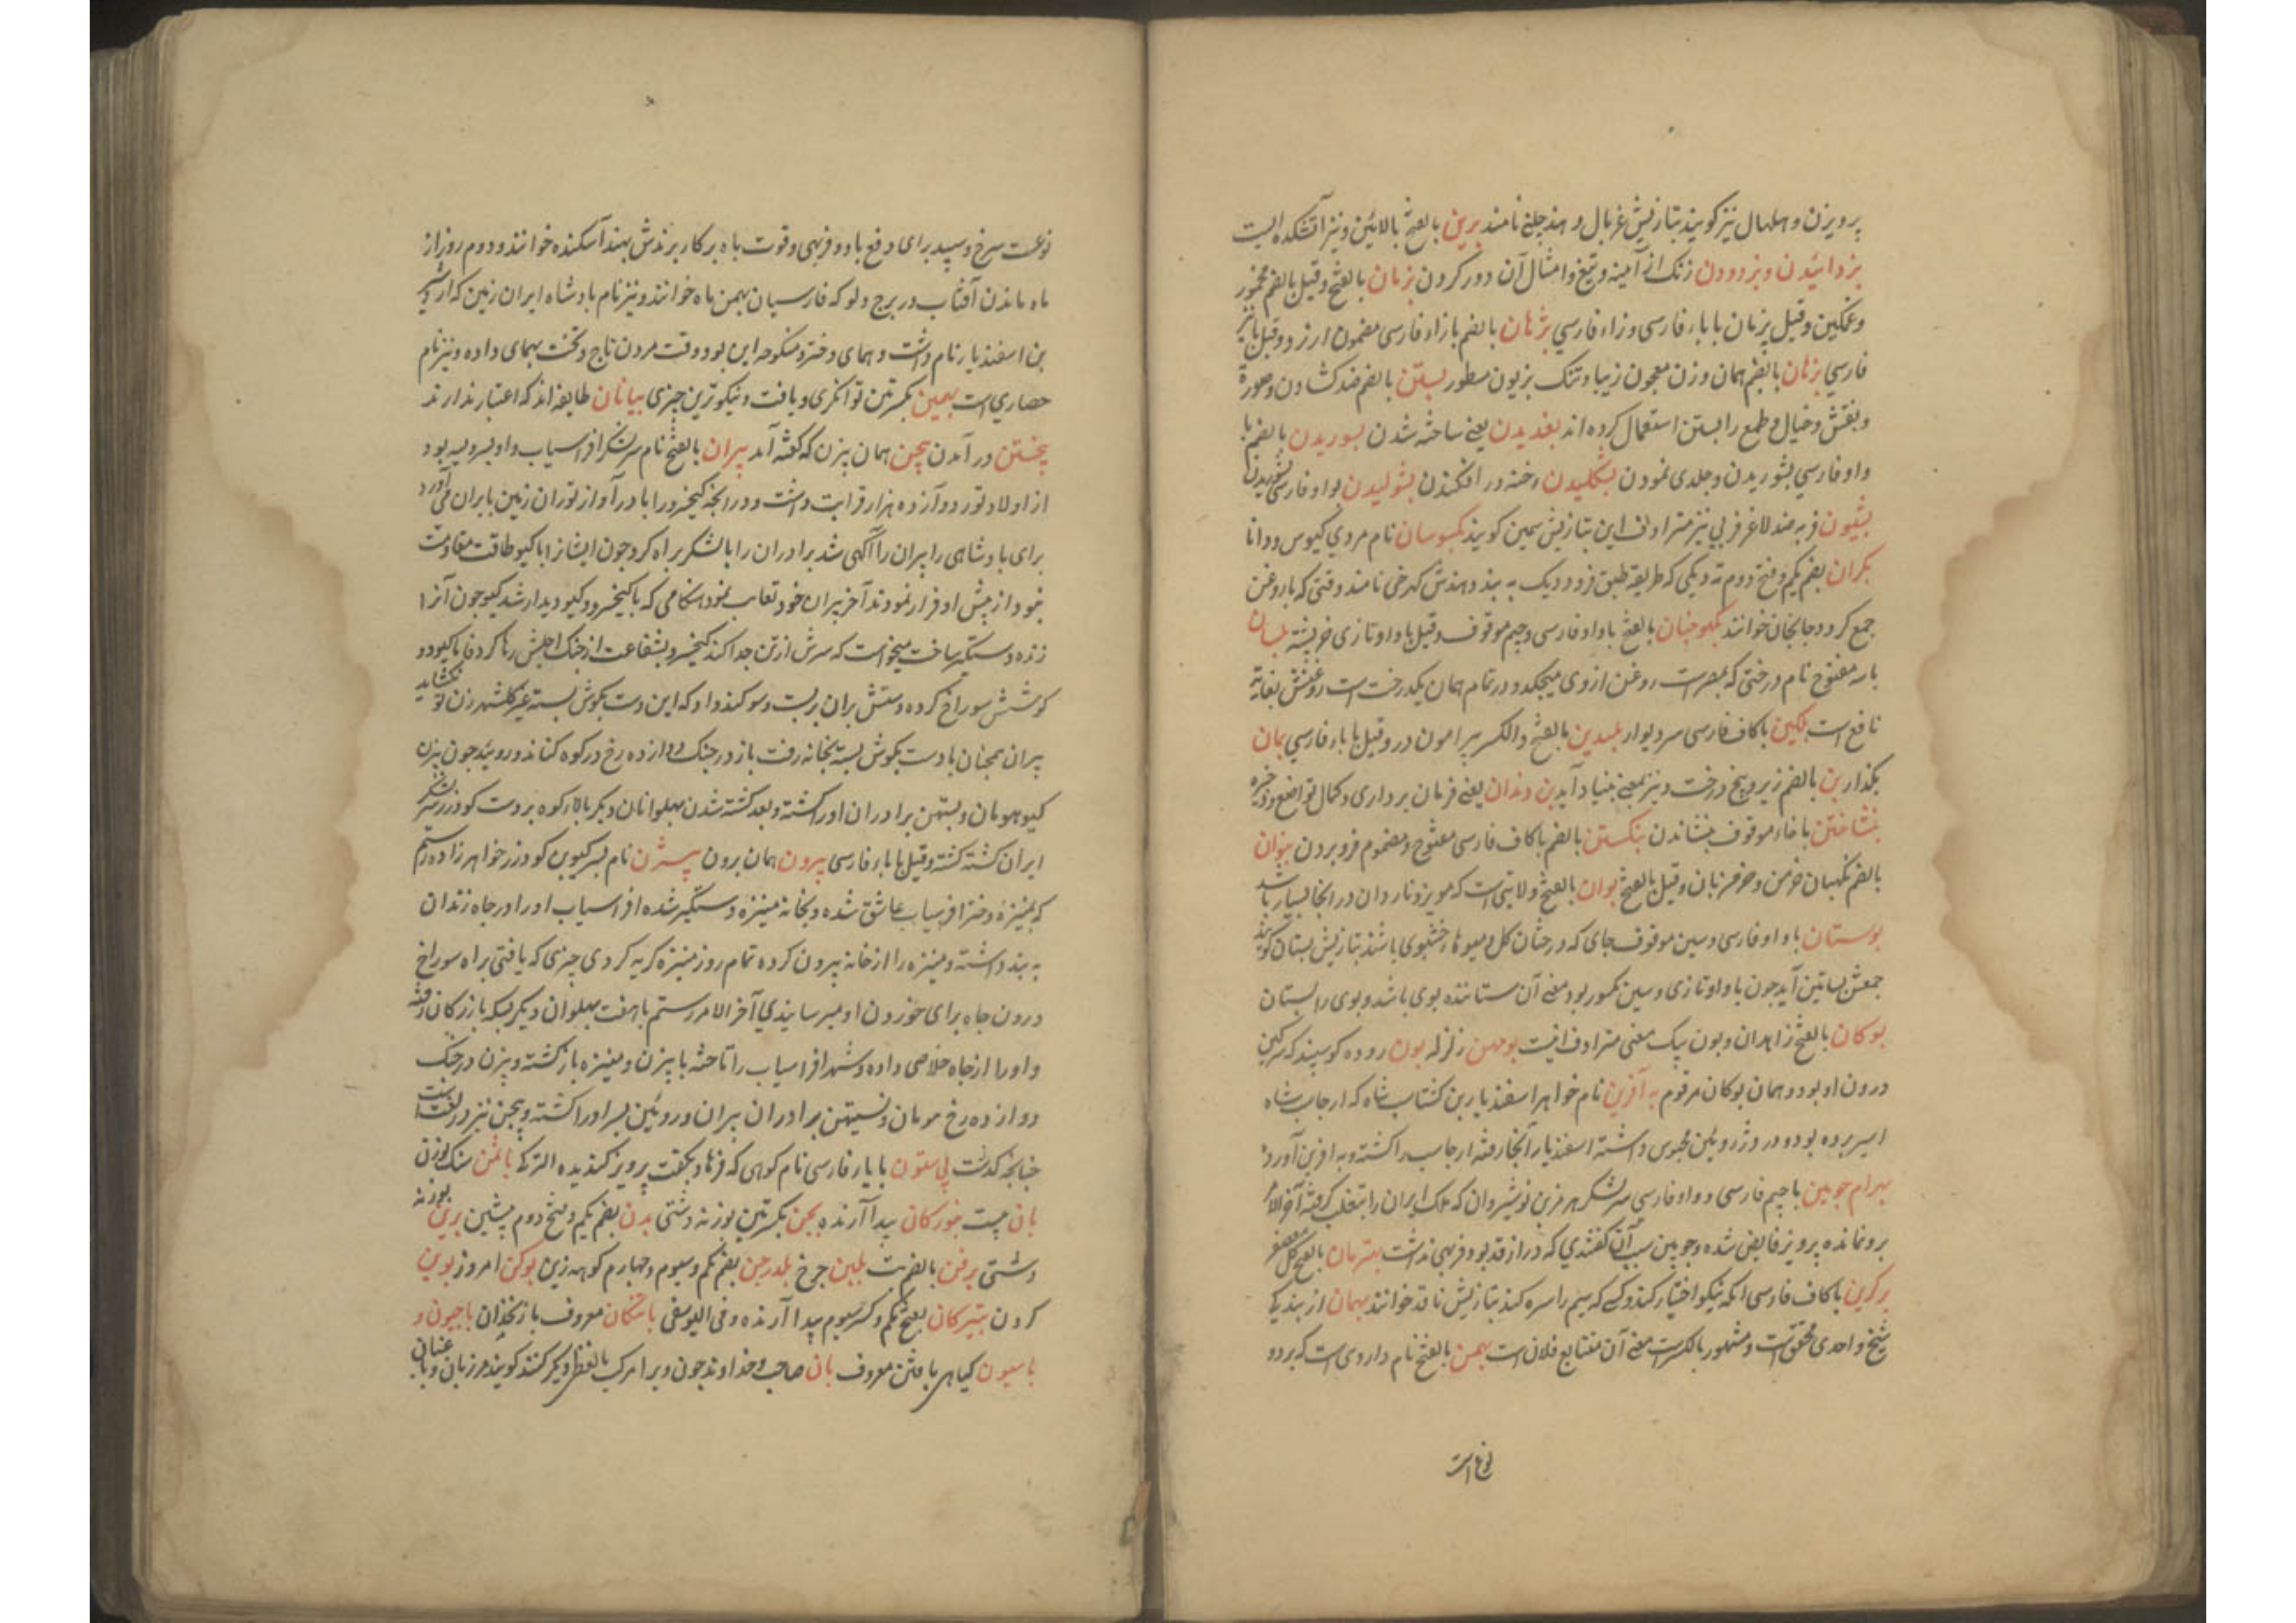 پرویزن و هلهال نیز گویند بتازیش غربال و هند چلنی نامند برین بالفتح بالائین و نیز آتشکده ایست
بزدائیدن و بزدودن زنک از آمینه و تیغ و امثال آن دور کردن بزمان بالفتح و قیل بالضم مخمور
و غمکین و قیل پزمان با باء فارسی و زاء فارسي بژهان بالضم با زاء فارسی مضمون ارزو و قیل با
فارسي بزهان بالضم همان وزن معجون زیبا و تنک بزیون مسطور بستن بالضم ضد کشادن و صورة
و بنقش و خیال و طمع را بستن استعمال کرده اند بغدیدن یعنے ساخته شدن بسوریدن بالضم با
واو فارسي بشوریدن و جلدی نمودن بشکلیدن رخنه در افکندن بشولیدن بواو فارسی شوریدن
بشیون فربه ضد لاغر فربي نیز مترادف این بتازیش سمین کویند بکموسان نام مردی کیوس و دانا
بکران بضم یکم و فتح دوم ته دیکی که طریقه طبق فرود دیک به بندد هندش کهرخی نامند وقتی که با روغن
جمع کردد جانجان خوانند بکهوجیان بالفتح با واو فارسی و جیم موقوف و قیل با واو تازی خریشته بلسان
با سه مفتوح نام درختی که بمصر است روغن از وی میچکد و در تمام همان یکدرخت است روغنش بغایة
نافع است بلکین با کاف فارسی سر دیوار بلندین بالفتح والکسر پیرامون در و قیل با باء فارسي بمان
بکذار بن بالضم زیر و بیخ درخت و نیز بمعنے بنیاد آید بن دندان یعنے فرمان برداری و کمال تواضع و ذخیره
بنشاختن با خاء موقوف بنشاندن بنکستن بالضم با کاف فارسی مفتوح و مضموم فرو بردن بنوان
بالضم نکهبان خرمن و خرمنزبان و قیل بالفتح بوان بالفتح ولایتی است که مویز و ناردان در انجا بسیار باشد
بوستان با واو فارسی و سین موقوف جای که درختان کل و میوها خشبوی باشند بتازیش بستان کویند
جمعش بساتین آید چون با واو تازی و سین مکسور بود معنے آن ستاننده بوی باشد و بوی را بستان
بوکان بالفتح زاهدان و بون بیک معنی مترادف است بومهن زلزله بون روده کوسپند که سرکین
درون او بود و همان بوکان مرقوم به آفرین نام خواهر اسفندیار بن کشتاسب شاه که ارجاسب شاه
اسیر برده بود و در دژ روئین محبوس داشته اسفندیار آنجا رفته ارجاسب را کشته و به آفرین آورد
بهرام چوبین با جیم فارسی و واو فارسی سر لشکر هرمز بن نوشیروان که ملک ایران را بتغلب کرفته آخرالامر
برو نمانده پرویز قابض شده و چوبین سبب آن کفتندي که دراز قد بود و فربهی نداشت بهترمان بالفتح کل معصفر
بر کزین با کاف فارسی انکه نیکو اختیار کند و کسے که سیم را سره کند بتازیش ناقد خوانند بهمان از بند یکے
شیخ واحدی محقق است و مشهور بالکسر است معنے آن مفتتابع فلان است بهمن بالفتح نام داروی است که بر دو
نوع است
نوعست سرخ و سپید برای دفع باد و فربهی و قوت باه بر کار برندش بهند آسکنده خوانند و دوم روز از
ماه ماندن آفتاب در برج دلو که فارسیان بهمن ماه خوانند و نیز نام بادشاه ایران زمین که اردشیر
بن اسفندیار نام داشت و همای دختر و منکوحه این بود وقت مردن تاج و تخت بهمای داده و نیز نام
حصاري است بهمین بکسرتین توانکری و یافت و نیکوترین چیزی بیانان طایفه اند که اعتبار ندارند
بیختن در آمدن بیچن همان بیزن که کفته آمد پیران بالفتح نام سر لشکر افراسیاب و او پسر ویسه بود
از اولاد تور دوازده هزار قرابت داشت و در انچه کیخسرو را با در آو از توران زمین بایران می آورد
برای بادشاهی را پیران را آکهی شد برادران را با لشکر براه کرد چون ایشانرا با کیو طاقت مقاومت
نبود از پیش او فرار نمودند آخر پیران خود تعاقب نمود هنکامی که با کیخسرو و کیو دیدار شد کیو چون آنرا
زنده دستکیر ساخت میخواست که سرش از تن جدا کند کیخسرو بشفاعت از چنک اجلش رها کرد فاما کیو دو
کوشش سوراخ کرده دستش بران بربست و سوکند داد که این دست بکوش بسته غیر کلشهر زن تو نکشاید
پیران همچنان با دست بکوش بسته بخانه رفت باز در جنک دوازده رخ در کوه کنابد و روئید چون بیزن
کیو هومان و نستیهن برادران او را کشته و بعد کشته شدن پهلوانان دیکر بالا کوه بر دست کودرز سر لشکر
ایران کشته کشته و قیل با باء فارسی بیرون همان برون بیژن نام پسر کیو بن کودرز خواهرزاده رستم
که بمنیزه دختر افرسیاب عاشق شده و بخانه منیزه دستکیر شده افراسیاب او را در چاه زندان
به بند داشته و منیزه را از خانه بیرون کرده تمام روز منیزه کریه کردی چیزی که یافتی براه سوراخ
درون چاه برای خوردن او میرسانیدي آخر الامر رستم با هفت پهلوان دیکر بسکه بازرکان رفته
و او را از چاه خلاصی داده و شهر افراسیاب را تاخته با بیزن و منیزه باز کشته و بیزن در جنک
دوازده رخ هومان و نستیهن برادران پیران و روئین پسر او را کشته و بیجن نیز در لغت است
چنانچه کذشت بی ستون با یاء فارسی نام کوهی که فرهاد بکفت پرویز کندیده الترکے باغن سنک لوزن
بان چیست بنورکان پیدا آرنده بجن بکسرتین بوزنه دشتی بدن بضم یکم و فتح دوم پیشین برین بوزنه
دشتی برفن بالضم بت بلبن چرخ بلدرجن بضم یکم و سیوم و چهارم کوهه زین بوکن امروز بوین
کردن بتیرکان بفتح یکم و کسر سیوم پیدا آرنده و فی الیوسفی بادنکان معروف بازنخذان باجیون و
باسیون کیاهی بافتن معروف بان صاحب و خداوند چون ویرا مرکب بالفظ دیکر کنند کویند مرزبان و باغبان